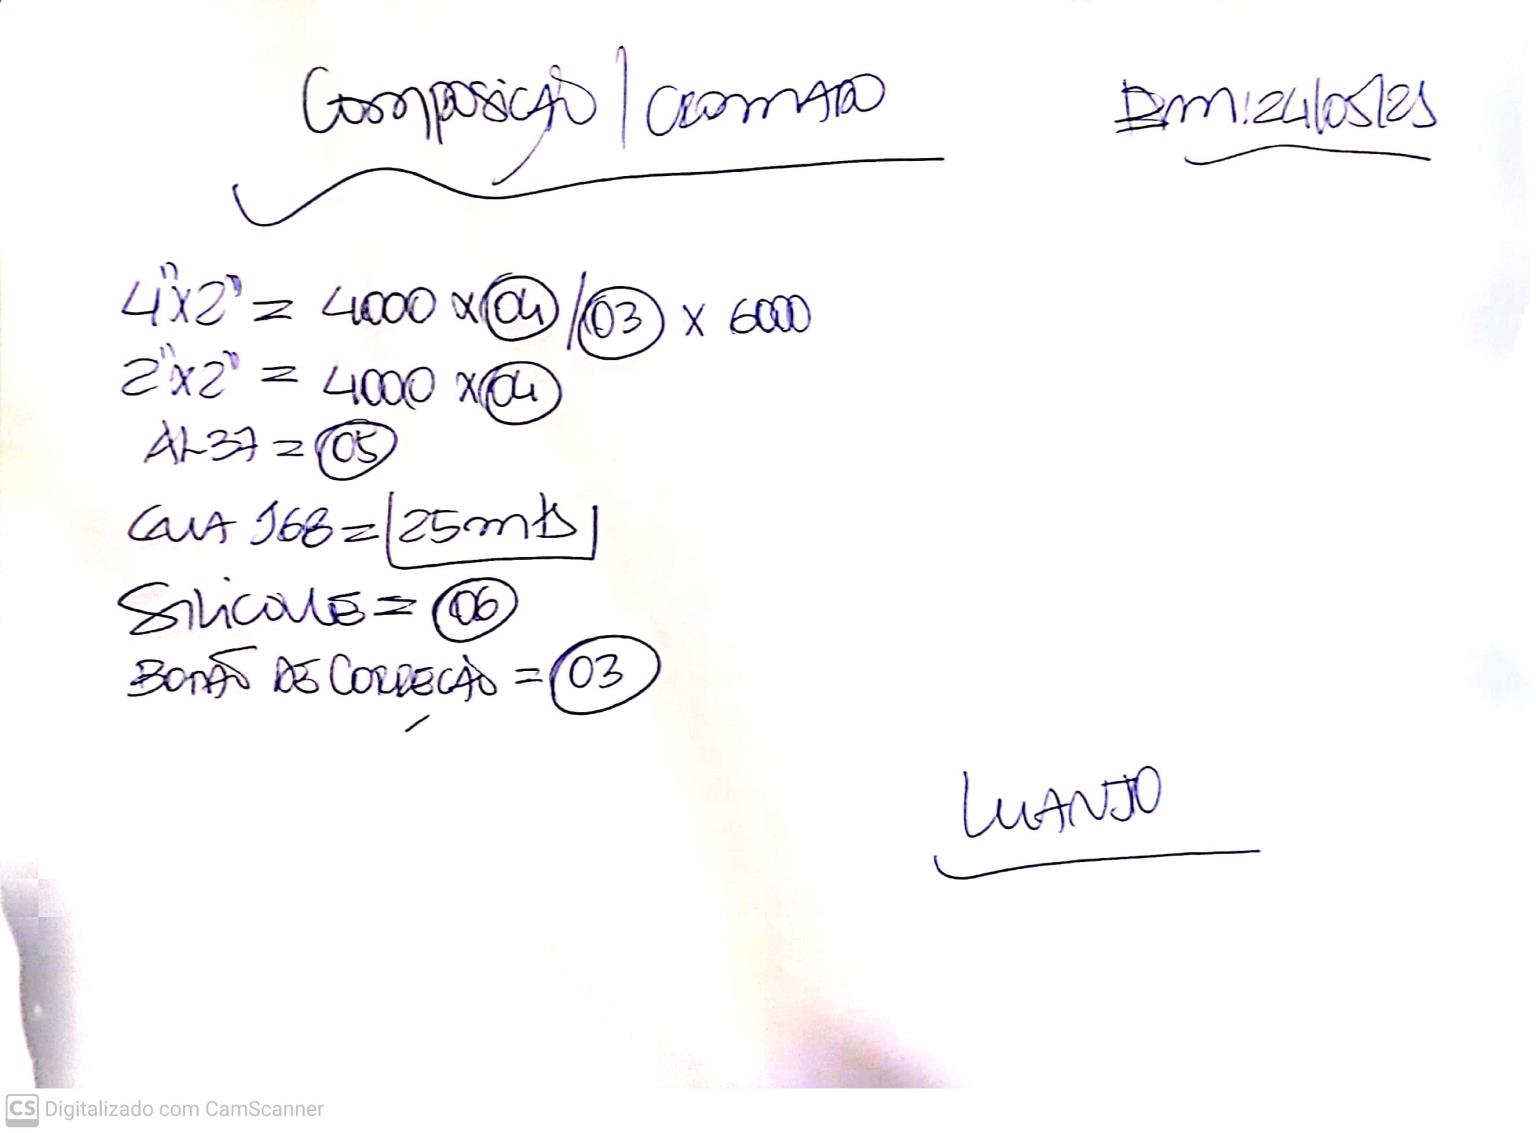 Composição / CROMADO
Em: 24/05/25
4"x2" = 4000 x 04 / 03 x 6000
2"x2" = 4000 x 04
AL37 = 05
168 = 25mts
Silicone = 06
BOTÃO DE CORREÇÃO = 03
LUANJO
CS Digitalizado com CamScanner